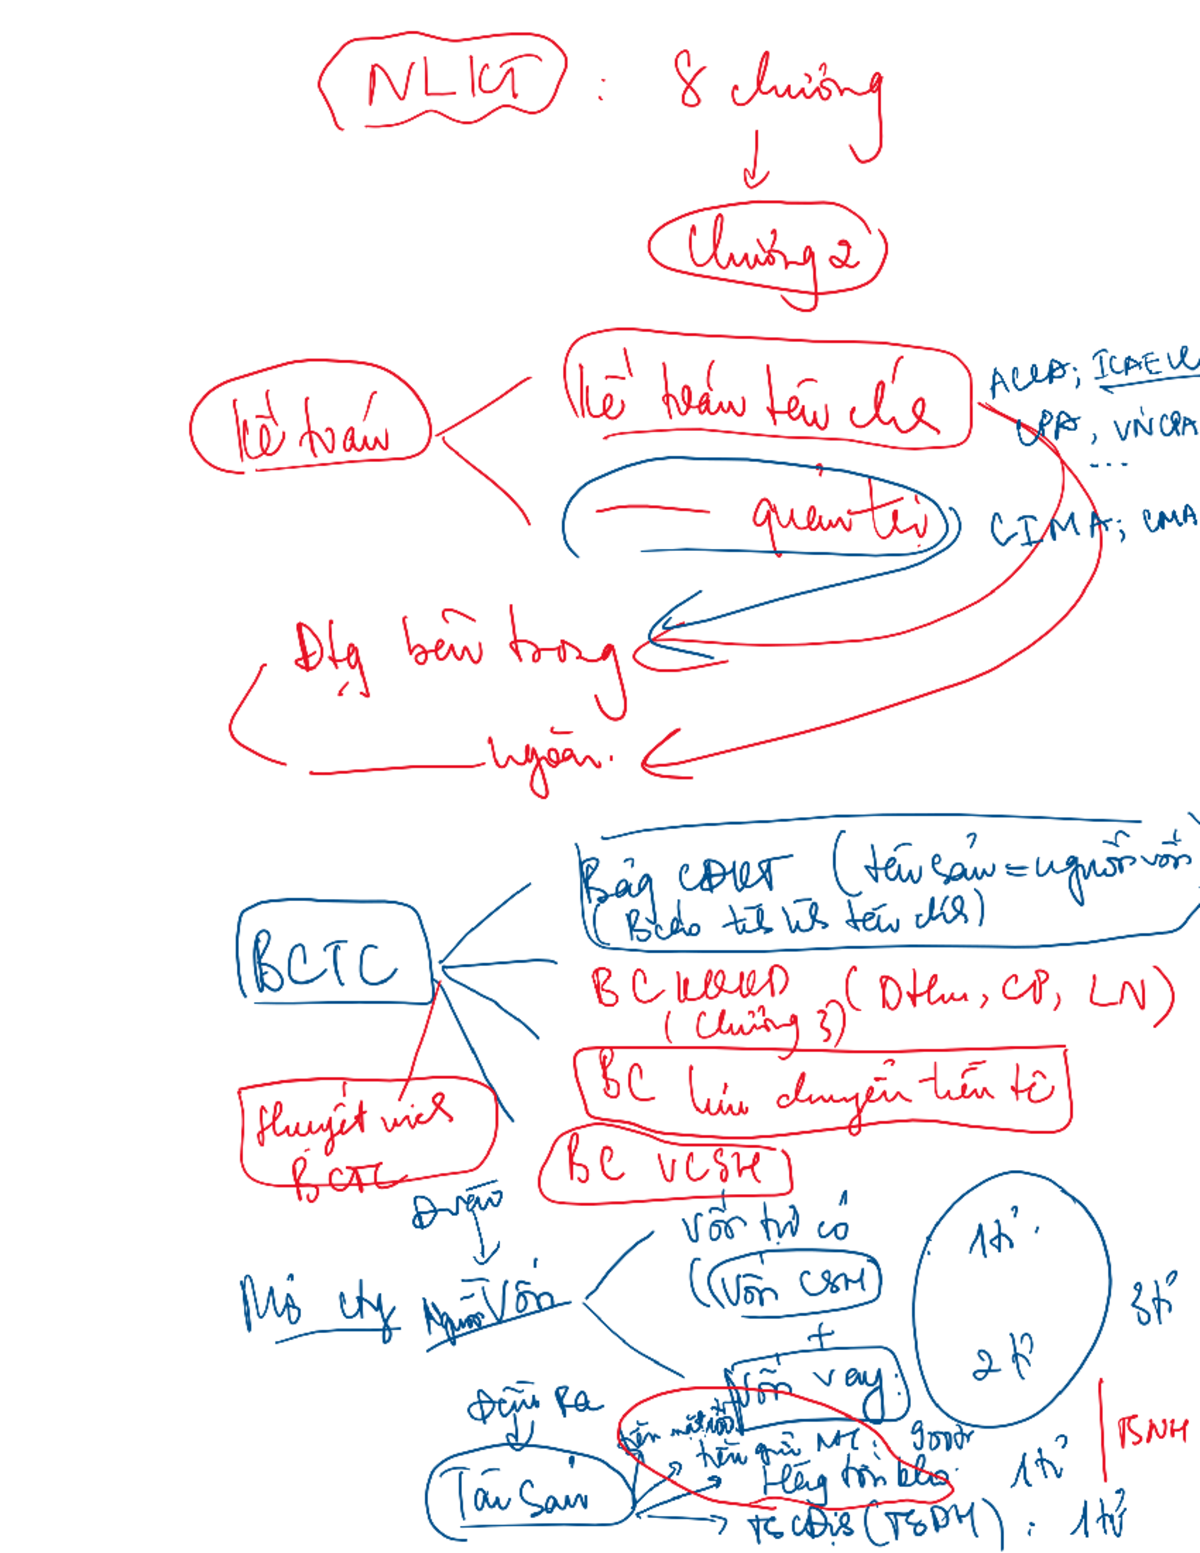 NLKT : 8 chương
Chương 2
Kế toán
Kế toán tài chính
ACCA; ICAEW
CPA, VNCPA
...
quản trị
CIMA; CMA
Đtg bên trong
ngoài.
BCTC
Bảg CĐKT (tài sản = nguồn vốn)
(Bcáo tìh hìh tài chíh)
BC KQKD (Dthu, CP, LN)
(Chương 3)
BC lưu chuyển tiền tệ
Thuyết minh
BCTC
BC VCSH
Đ vào
Mở cty Nguồn Vốn
Vốn tự có
(Vốn CSH
+
Vốn vay:
1 tỉ
2 tỉ
3 tỉ
Đầu Ra
Tài sản
tiền mặt
tiền gửi NH: 900tr
Hàng tồn kho: 1 tỉ
TSNH
TSCĐih (TSDH): 1 tỉ